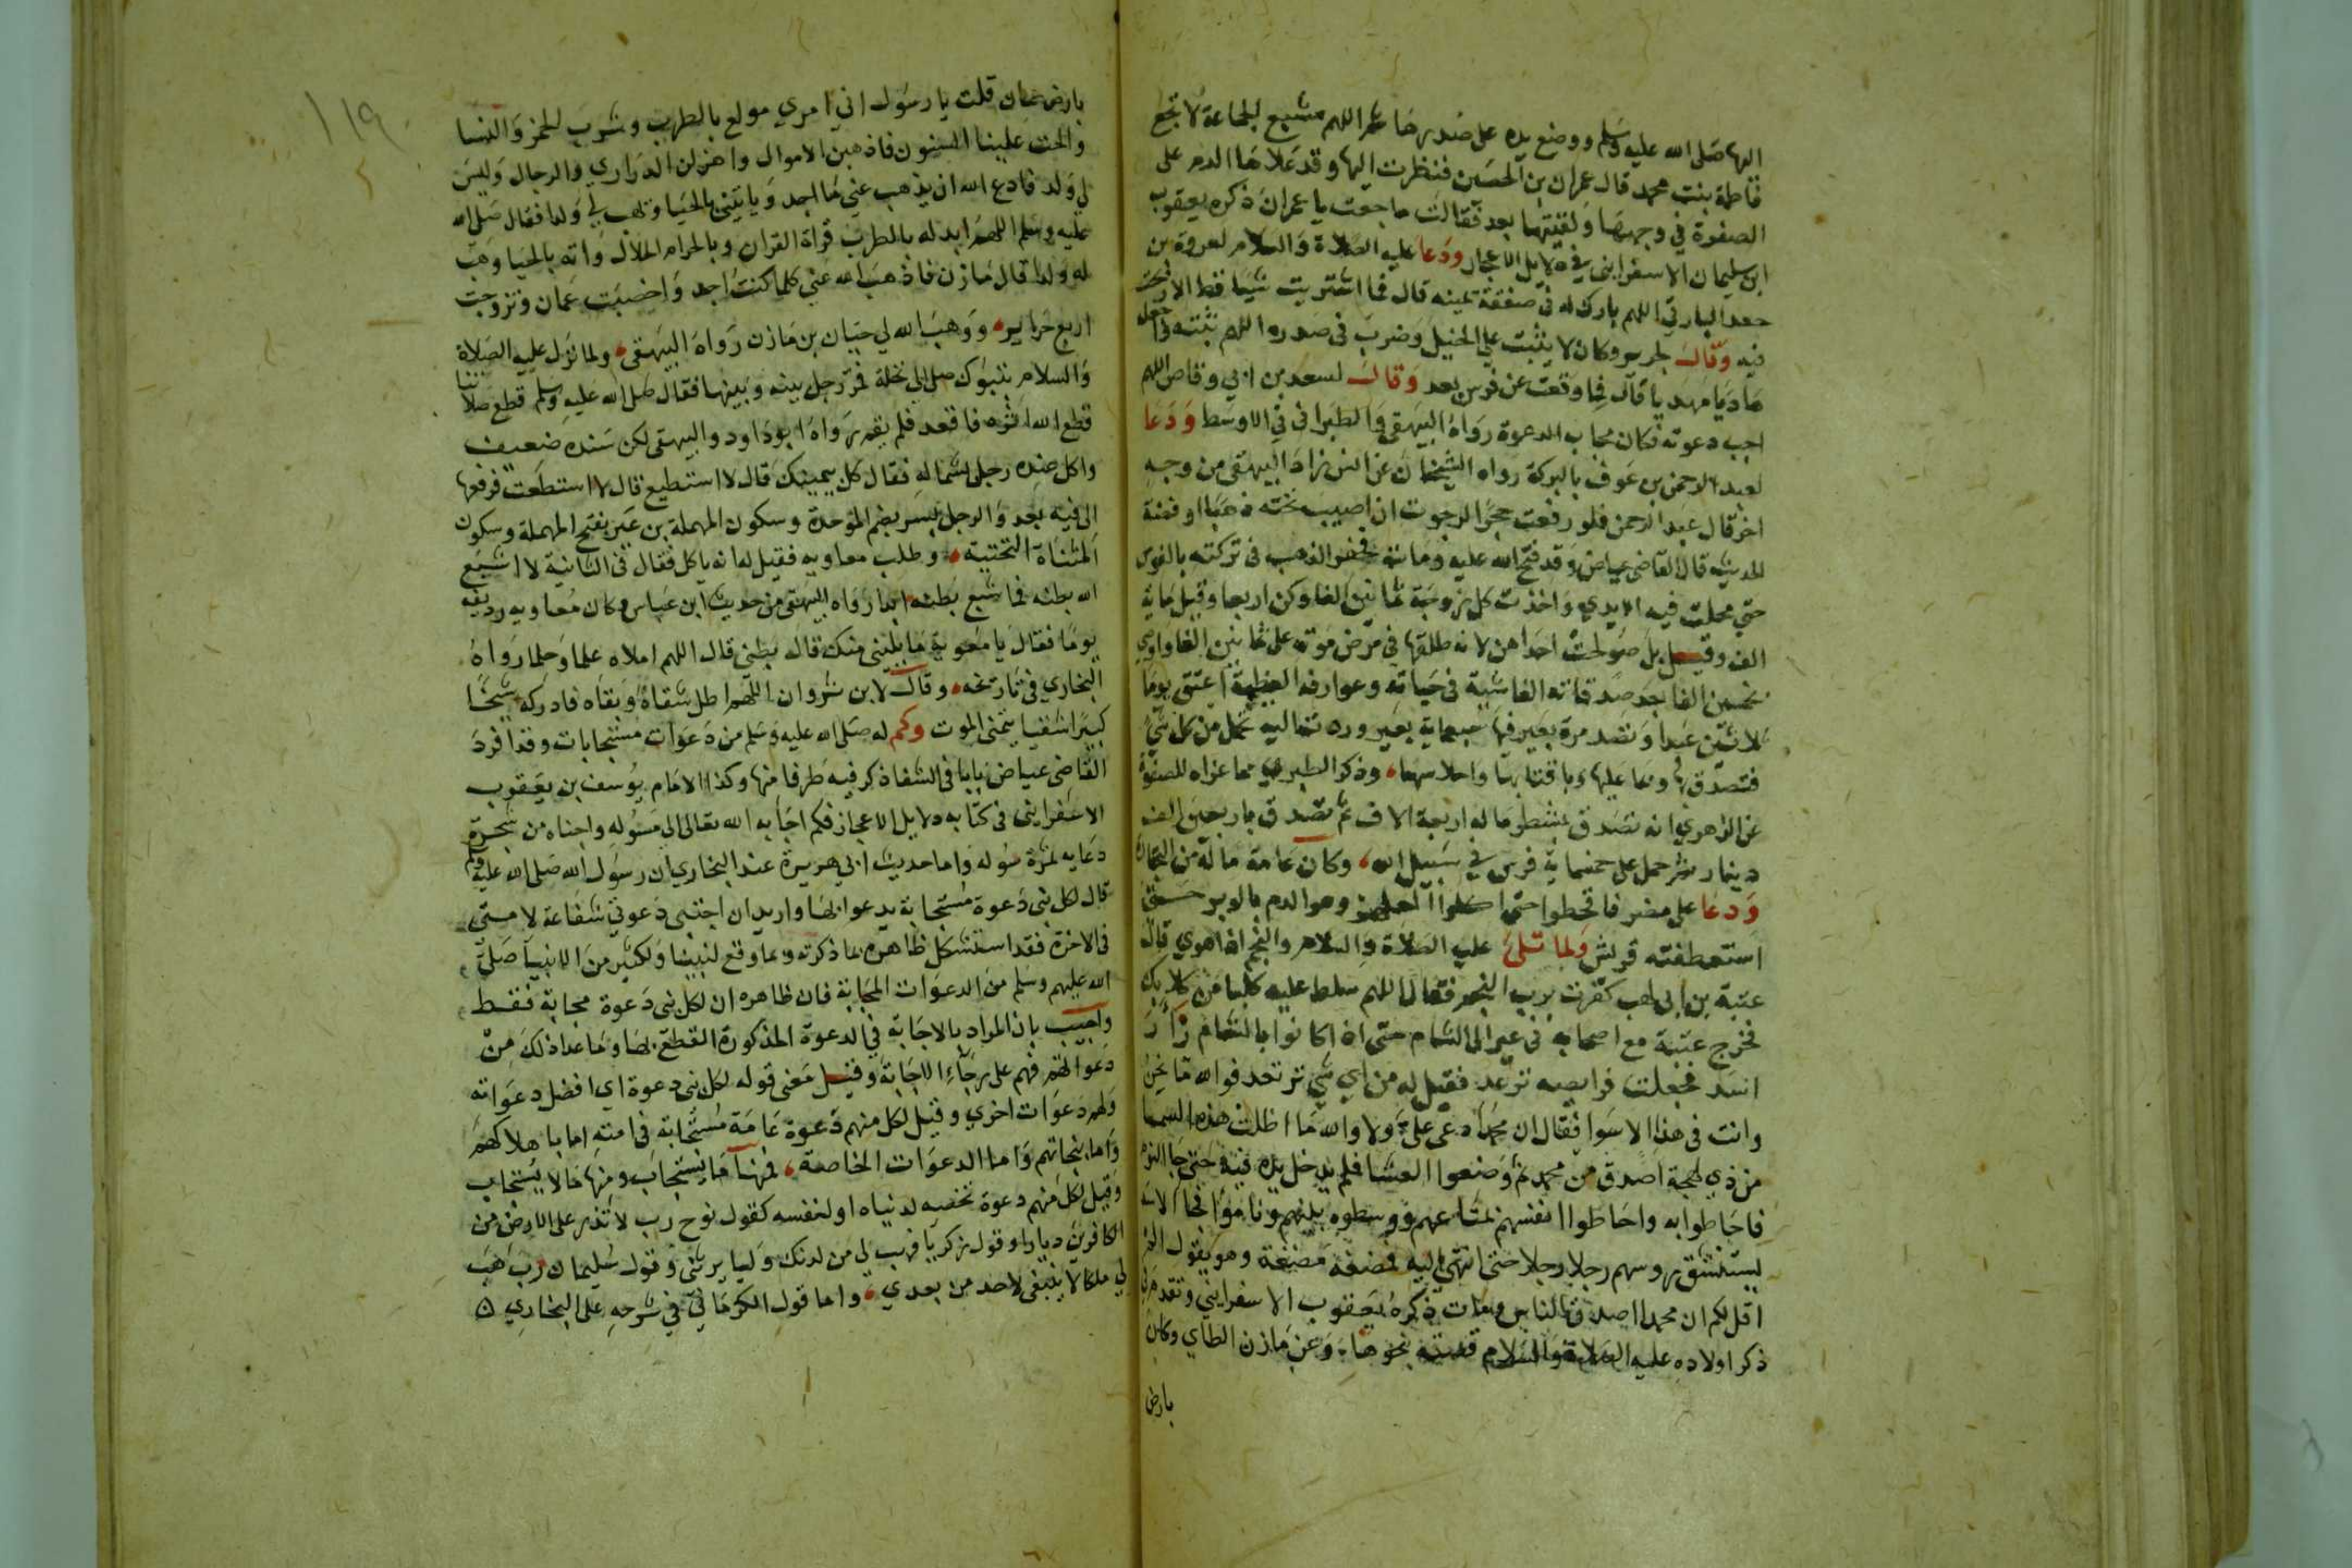 اليها صلى الله عليه وسلم ووضع يده على صدرها ثم قال اللهم مشبع الجاعة لا تجع
فاطمة بنت محمد قال عمران بن الحصين فنظرت اليها وقد علاها الدم على
الصفرة في وجهها ولقيتها بعد فقالت ما جعت يا عمران ذكره يعقوب
ابن سليمان الاسفرايني في دلايل الاعجاز ودعا عليه الصلاة والسلام لعروة بن
جعد البارقي اللهم بارك له في صفقة يمينه قال فما اشتريت شيا قط الا ربحت
فيه وقال لجرير وكان لا يثبت علي الخيل وضرب في صدره اللهم ثبته واجعله
هاديا مهديا قال فما وقعت عن فرس بعد وقال لسعد بن ابي وقاص اللهم
اجب دعوته فكان مجاب الدعوة رواه البيهقي والطبراني في الاوسط ودعا
لعبد الرحمن بن عوف بالبركة رواه الشيخان عن انس زاد البيهقي من وجه
اخر قال عبد الرحمن فلو رفعت حجرا لرجوت ان اصيب تحته ذهبا او فضة
الحديث قال القاضي عياض وقد فتح الله عليه ومات فحفر الذهب في تركته بالفوس
حتي مجلت فيه الايدي واخذت كل زوجة ثمانين الفا وكن اربعا وقيل ماية
الف وقيل بل صولحت احداهن لانه طلقها في مرض موته على ثمانين الفا واوصى
بخمسين الفا بعد صدقاته الفاشية في حياته وعوارفه العظيمة اعتق يوما
ثلاثين عبدا وتصدق مرة بعير فيها سبعماية بعير وردت عليه تحمل من كل شي
فتصدق بها وما عليها وباقتابها واحلاسها وذكر الطبري مما عزاه للصفوة
عن الزهري انه تصدق بشطر ماله اربعة الاف ثم تصدق باربعين الف
دينار ثم حمل على خمسماية فرس في سبيل الله وكان عامة ماله من التجارة
ودعا على مضر فاقحطوا حتى اكلوا العلهز وهو الدم بالوبر حتى
استعطفته قريش ولما تلى عليه الصلاة والسلام والنجم اذا هوي قال
عتبة بن ابي لهب كفرت برب النجم فقال اللهم سلط عليه كلبا من كلابك
فخرج عتبة مع اصحابه في عير الى الشام حتى اذا كانوا بالشام زار
اسد فجعلت فرايصه ترعد فقيل له من اي شي ترتعد فوالله ما نحن
وانت في هذا الا سوا فقال ان محمدا دعى علي ولا والله ما اظلت هذه السما
من ذي لهجة اصدق من محمد ثم وضعوا العشا فلم يدخل يده فيه حتى جا النوم
فاحاطوا به واحاطوا انفسهم بمتاعهم ووسطوه بينهم وناموا فجا الاسد
يستنشق روسهم رجلا رجلا حتى انتهى اليه فمضغه مضغة وهو يقول الم
اقل لكم ان محمدا اصدق الناس ومات ذكره يعقوب الاسفرايني وتقدم في
ذكر اولاده عليه الصلاة والسلام قصته بنحوها وعن مازن الطاي وكان
بارض
١١٩
بارض عمان قلت يا رسول اني امري مولع بالطرب وشرب الخمر والنسا
والحت علينا السنون فاذهبن الاموال واهزلن الدراري والرجال وليس
لي ولد فادع الله ان يذهب عني ما اجد وياتيني بالحيا ويهب لي ولدا فقال صلى الله
عليه وسلم اللهم ابدله بالطرب قراة القران وبالحرام الحلال واته بالحيا وهب
له ولدا قال مازن فاذهب الله عني كلما كنت اجد واخصبت عمان وتزوجت
اربع حراير ووهب الله لي حيان بن مازن رواه البيهقي ولما نزل عليه الصلاة
والسلام بتبوك صلى الى نخلة فمر رجل بينه وبينها فقال صلى الله عليه وسلم قطع صلاتنا
قطع الله اثره فاقعد فلم يقم رواه ابو داود والبيهقي لكن سنده ضعيف
واكل عنده رجل بشماله فقال كل بيمينك قال لا استطيع قال لا استطعت فما رفعها
الى فيه بعد والرجل بسر بضم الموحدة وسكون المهملة بن عير بفتح المهملة وسكون
المثناة التحتية وطلب معاوية فقيل له انه ياكل فقال في الثانية لا اشبع
الله بطنه فما شبع بطنه ابدا رواه البيهقي من حديث ابن عباس وكان معاوية رديفه
يوما فقال يا معوية ما يليني منك قال بطني قال اللهم املاه علما وحلما رواه
البخاري في تاريخه وقال لابن ثروان اللهم اطل شقاه وبقاه فادركه شيخا
كبيرا شقيا يتمنى الموت وكم له صلى الله عليه وسلم من دعوات مستجابات وقد افرد
القاضي عياض بابا في الشفا ذكر فيه طرفا منها وكذا الامام يوسف بن يعقوب
الاسفرايني في كتابه دلايل الاعجاز فكم اجابه الله تعالى الى مسوله واجناه من شجرة
دعايه ثمرة سوله واما حديث ابي هريرة عند البخاري ان رسول الله صلى الله عليه وسلم
قال لكل نبي دعوة مستجابة يدعوا بها واريد ان اختبي دعوتي شفاعة لامتي
في الاخرة فقد استشكل ظاهره بما ذكرته وبما وقع لنبينا ولكثير من الانبيا صلى
الله عليهم وسلم من الدعوات المجابة فان ظاهره ان لكل نبي دعوة مجابة فقط
واجيب بان المراد بالاجابة في الدعوة المذكورة القطع بها وما عدا ذلك من
دعواتهم فهم على رجاء الاجابة وقيل معنى قوله لكل نبي دعوة اي افضل دعواته
ولهم دعوات اخري وقيل لكل منهم دعوة عامة مستجابة في امته اما باهلاكهم
واما بنجاتهم واما الدعوات الخاصة فمنها ما يستجاب ومنها ما لا يستجاب
وقيل لكل منهم دعوة تخصه لدنياه او لنفسه كقول نوح رب لا تذر على الارض من
الكافرين ديارا وقول زكريا فهب لي من لدنك وليا يرثني وقول سليمان رب هب
لي ملكا لا ينبغي لاحد من بعدي واما قول الكرماني في شرحه على البخاري